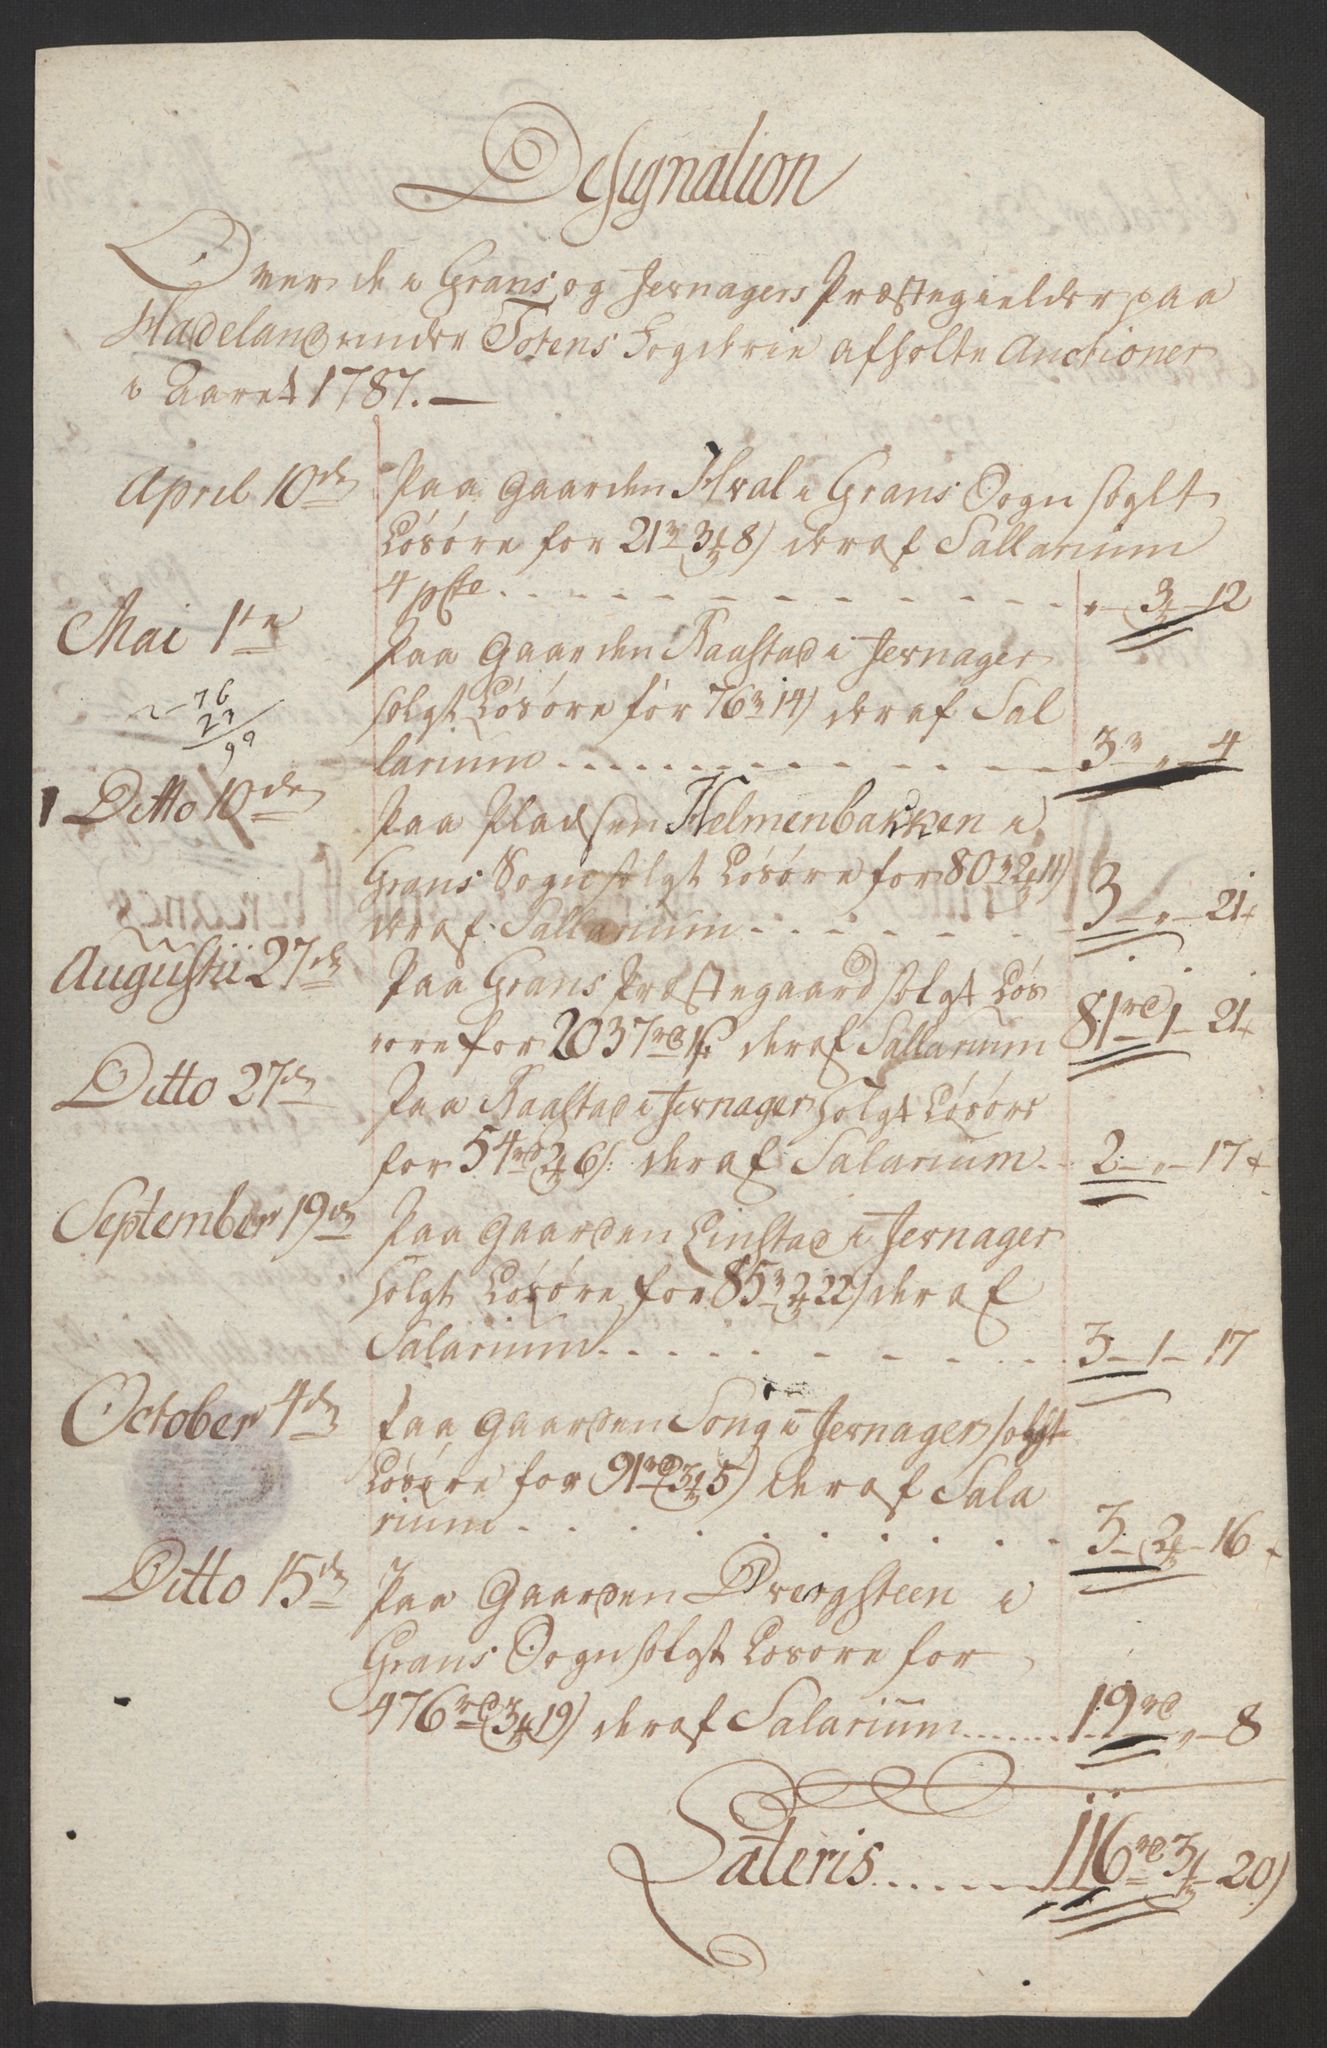 Designation
Over de i Grans og Jevnagers Præstegielder paa
Hadeland under Totens Fogderie afholte Auctioner
i Aaret 1787. —
April 10de Paa Gaarden Hval i Grans Sogn soglt
Løsøre for 21 rd 3 # 8 s deraf Sallarium
4 pCto . . . . . " 3 - 12
Mai 1te Paa Gaarden Raastad i Jevnager
solgt Løsøre for 76 rd 14 s deraf Sal
2 - 76
23
99
larium . . . . . 3 " 4
Ditto 10de Paa Pladsen Helmenbakken i
Grans Sogn solgt Løsøre for 80 rd 2 # 11 s
deraf Sallarium . . . . . 3 - " - 21
Augustii 27de Paa Grans Præstegaard solgt Løs
øre for 2037 rd 1 # deraf Sallarium 81 rd 1 - 21
Ditto 27de Paa Raastad i Jevnager solgt Løsøre
for 54 rd 2 # 6 s: deraf Salarium . . 2 - " - 17
September 19de Paa Gaarden Linstad i Jevnager
solgt Løsøre for 85 rd 2 # 22 s deraf
Salarium . . . . . 3 - 1 - 17
October 4de Paa Gaarden Song i Jevnager solgt
Løsøre for 91 rd 3 # 5 s deraf Sala
rium . . . . . 3 - 2 - 16
Ditto 15de Paa Gaarden Dvergsteen i
Grans Sogn solgt Løsøre for
476 rd 3 # 19 s deraf Salarium . . . . . 19 rd " - 8
Lateris . . . . . 116 rd 3 # - 20 s